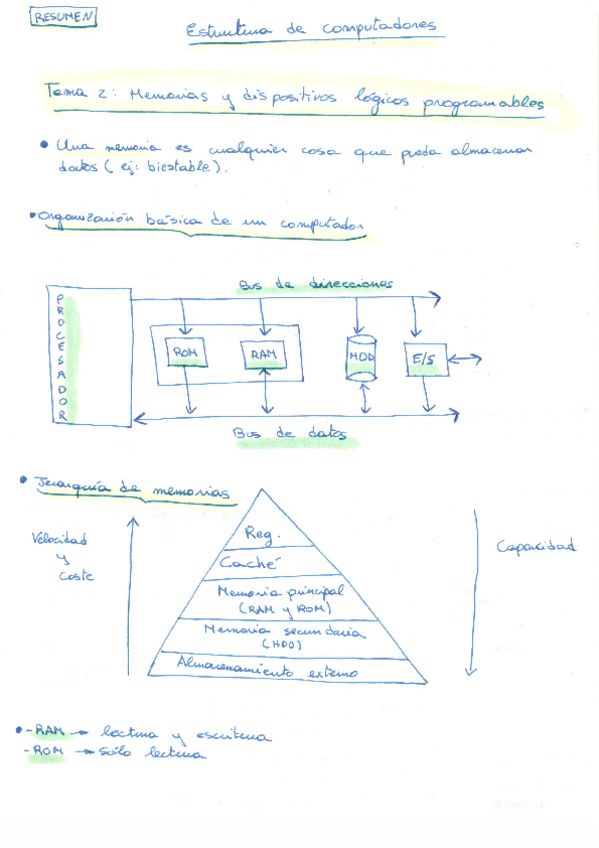 RESUMEN
Estructura de computadores
Tema 2: Memorias y dispositivos lógicos programables
• Una memoria es cualquier cosa que pueda almacenar
datos (ej: biestable).
• Organización básica de un computador
Bus de direcciones
PROCESADOR
ROM
RAM
HDD
E/S
Bus de datos
• Jerarquía de memorias
Velocidad
y
Coste
Reg.
Caché
Memoria principal
(RAM y ROM)
Memoria secundaria
(HDD)
Almacenamiento externo
Capacidad
• - RAM → lectura y escritura
- ROM → Sólo lectura